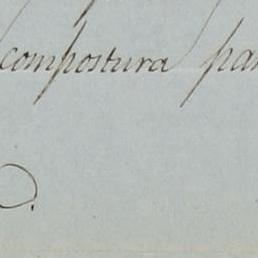 compostura par